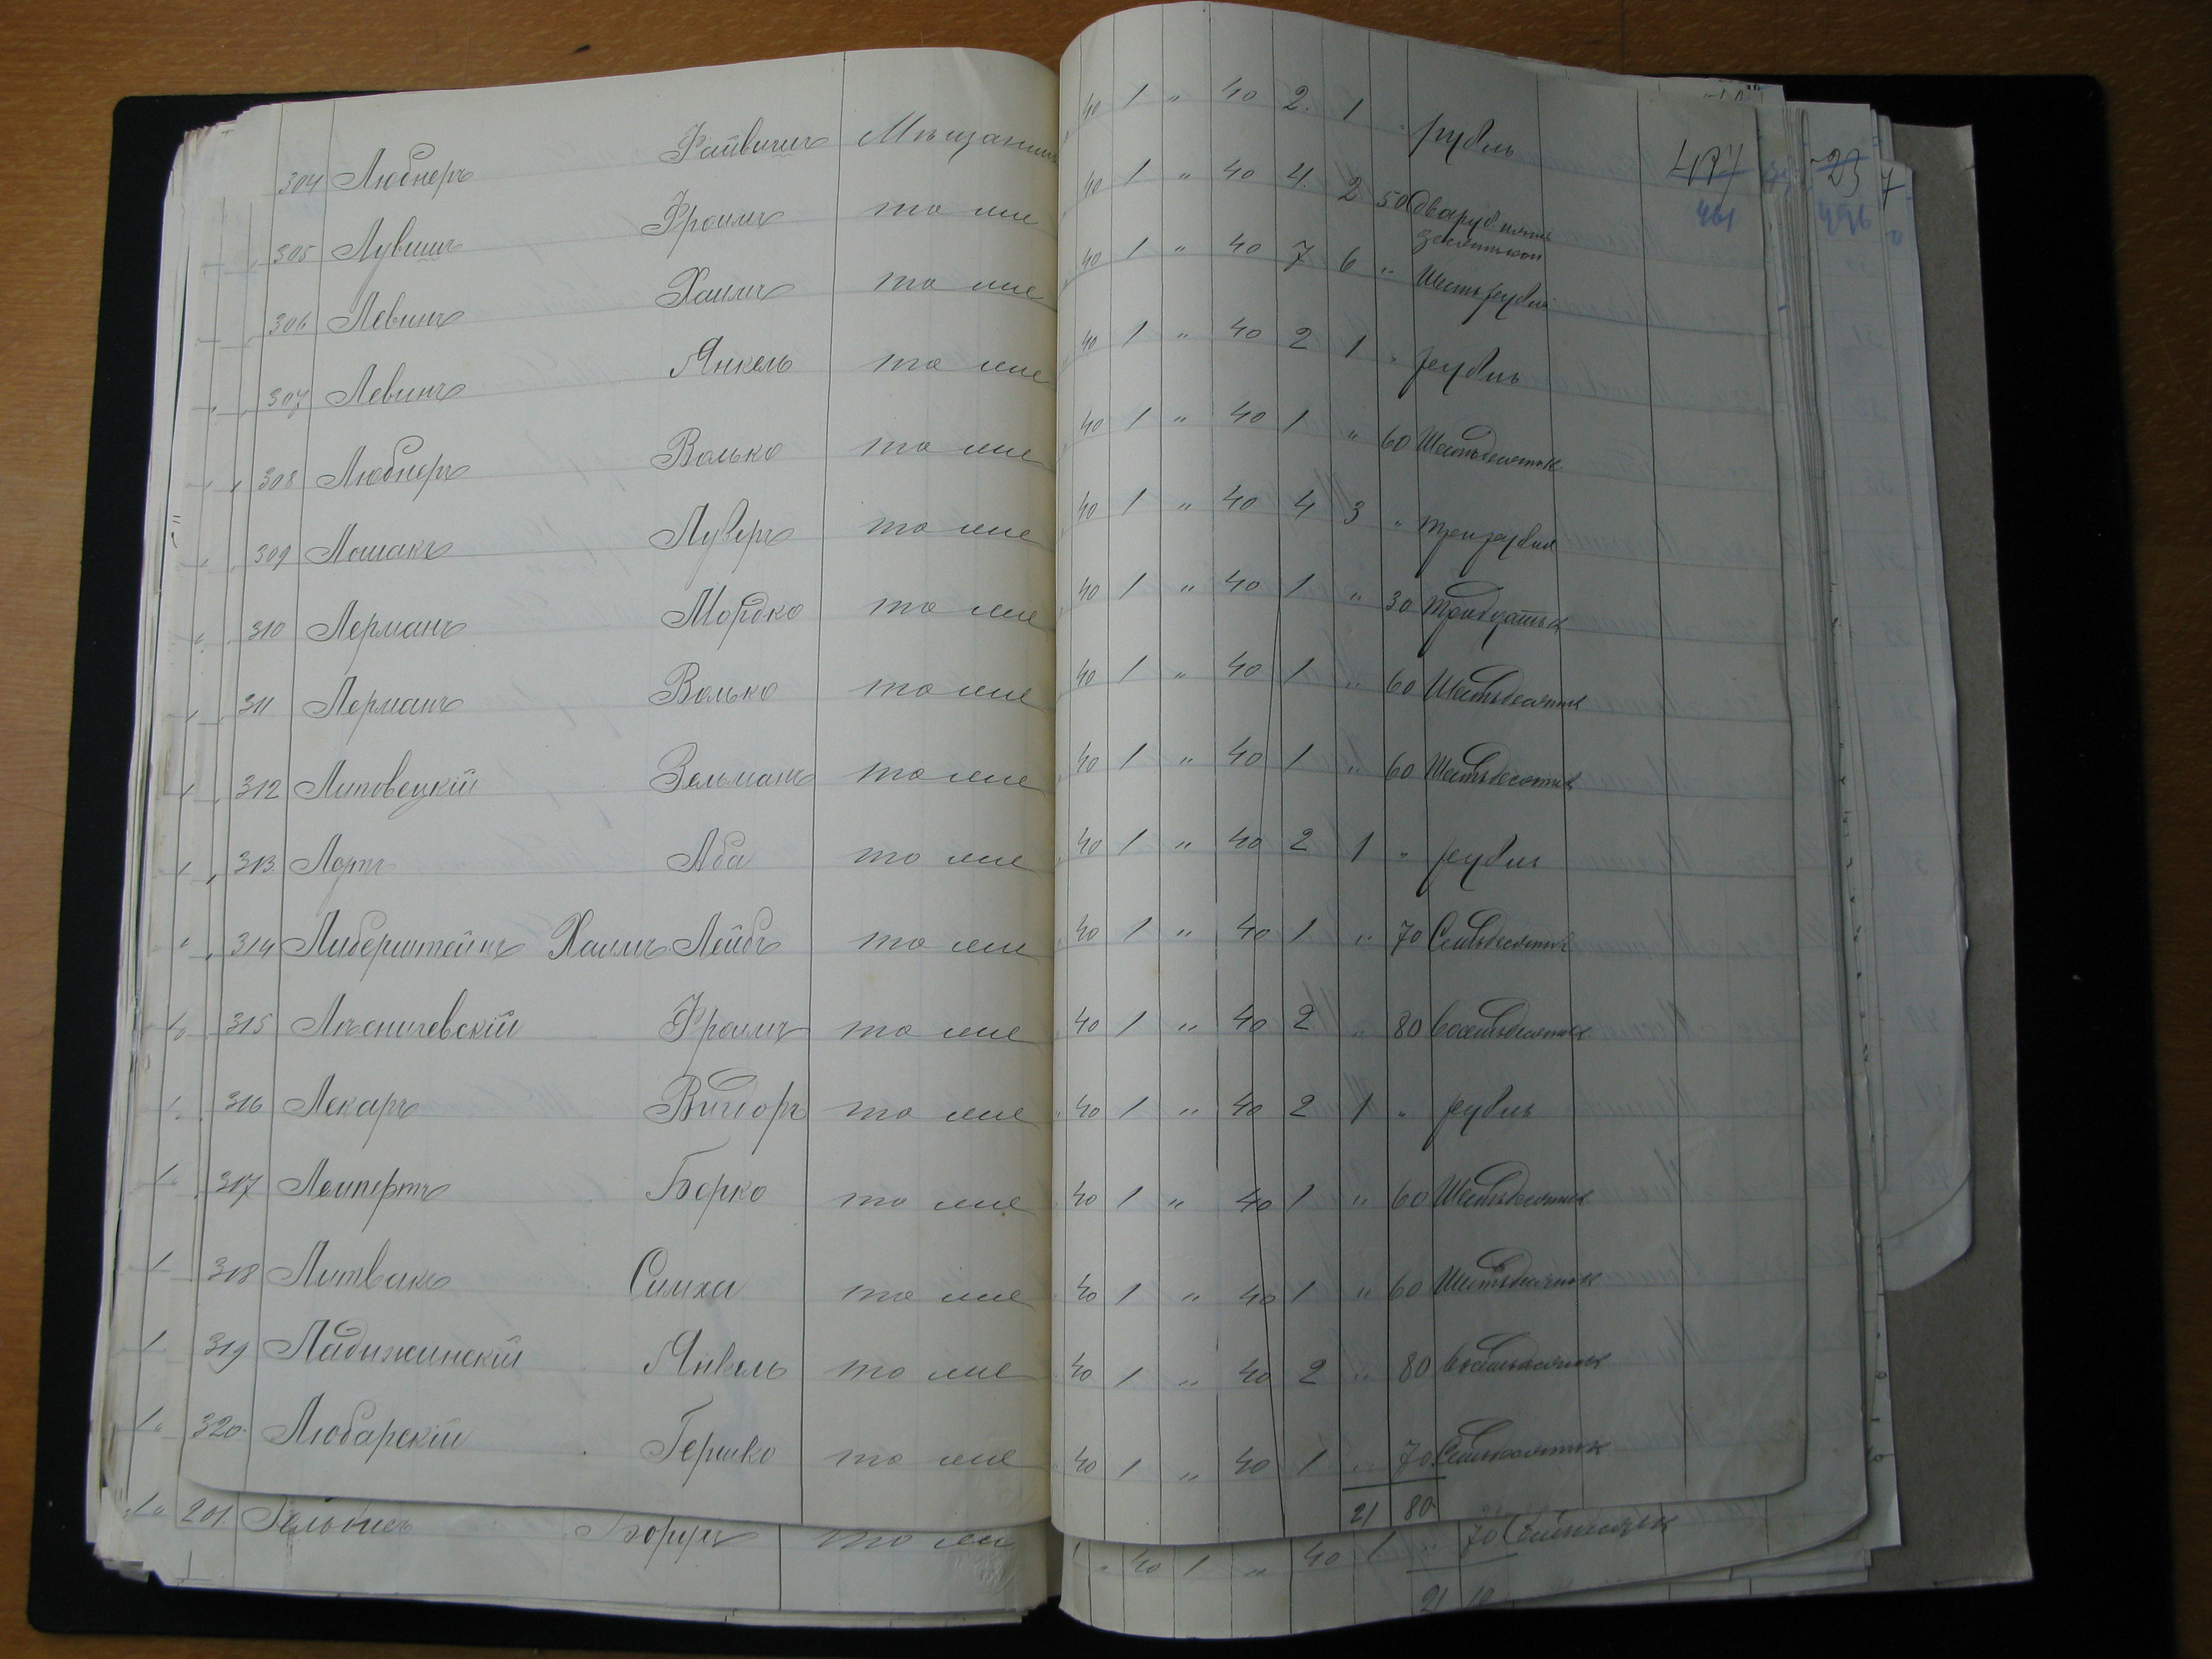 304 Любнеръ Файвишъ Мѣщанинъ 40 1 " 40 2 1 " рубль 497
461
305 Лувишъ Фроимъ то же 40 1 " 40 4 2 50 два руб. пять
десятъ коп
306 Левинъ Хаимъ то же 40 1 " 40 7 6 " Шесть рублей
307 Левинъ Янкель то же 40 1 " 40 2 1 " рубль
308 Любнеръ Волько то же 40 1 " 40 1 " 60 Шестьдесятъ к
309 Лошакъ Лузеръ то же 40 1 " 40 4 3 " три рубля
310 Лерманъ Мордко то же 40 1 " 40 1 " 30 Тридцать к
311 Лерманъ Волько то же 40 1 " 40 1 " 60 Шестьдесятъ к
312 Литовецкій Зельманъ то же 40 1 " 40 1 " 60 Шестьдесятъ к
313 Лортъ Аба то же 40 1 " 40 2 1 " рубль
314 Либерштейнъ Хаимъ Лейбъ то же 40 1 " 40 1 " 70 Семьдесятъ к
315 Лѣсничевскій Фроимъ то же 40 1 " 40 2 " 80 восемьдесятъ к
316 Лекаръ Вигдоръ то же 40 1 " 40 2 1 " рубль
317 Лемпертъ Берко то же 40 1 " 40 1 " 60 Шестьдесятъ к
318 Литвакъ Симха то же 40 1 " 40 1 " 60 Шестьдесятъ к
319 Ладижинскій Янкель то же 40 1 " 40 2 " 80 восемьдесятъ к
320 Любарскій Гершко то же 40 1 " 40 1 " 70 Семьдесятъ к
21 80
201 то же 40 1 " 40 1 " 70